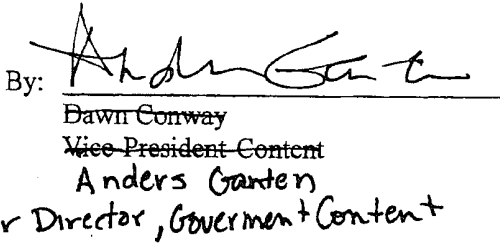 By: Anders Ganten
Dawn Conway
Vice President Content
Anders Ganten
r Director, Goverment Content